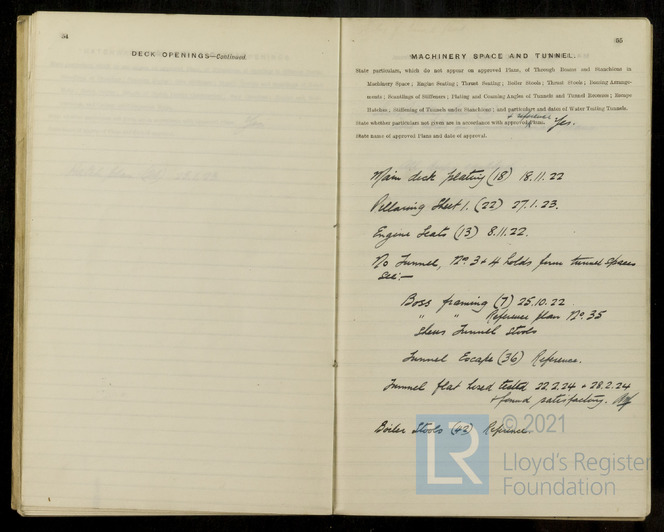 54
DECK OPENINGS—Continued.
55
MACHINERY SPACE AND TUNNEL.
State particulars, which do not appear on approved Plans, of Through Beams and Stanchions in
Machinery Space; Engine Seating; Thrust Seating; Boiler Stools; Thrust Stools; Boxing Arrange-
ments; Scantlings of Stiffeners; Plating and Coaming Angles of Tunnels and Tunnel Recesses; Escape
Hatches; Stiffening of Tunnels under Stanchions; and particulars and dates of Water Testing Tunnels.
+ reference
State whether particulars not given are in accordance with approved Plans. Yes.
State name of approved Plans and date of approval.
Main deck plating (18) 18.11.22
Pillaring Sheet 1. (22) 27.1.23.
Engine Seats (13) 8.11.22.
No Tunnel, No. 3 + 4 holds form tunnel spaces
see:—
Boss framing (7) 25.10.22
" " Reference plan No. 35
Shews Tunnel Stools
Tunnel Escape (36) Reference.
Tunnel flat hosed tested 22.2.24 + 28.2.24
+ found satisfactory.
Boiler Stools (42) Reference.
LR
© 2021
Lloyd's Register
Foundation